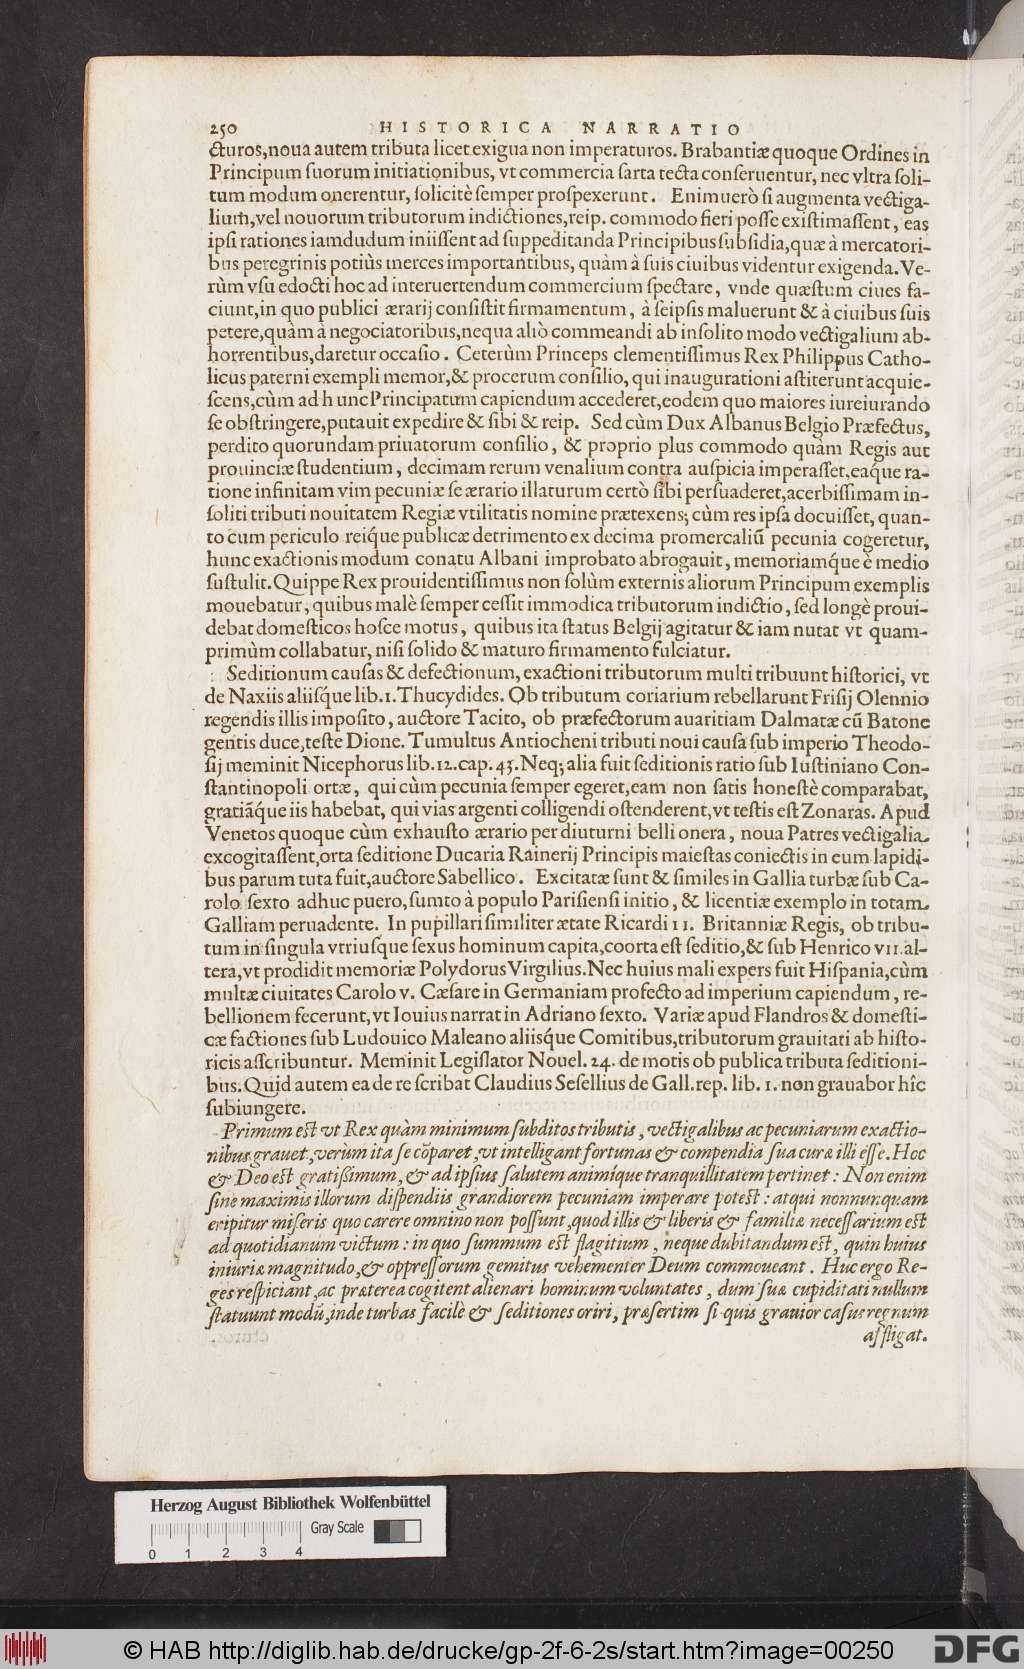 250 HISTORICA NARRATIO
cturos,noua autem tributa licet exigua non imperaturos. Brabantiæ quoque Ordines in
Principum suorum initiationibus, vt commercia sarta tecta conseruentur, nec vltra soli-
tum modum onerentur, solicitè semper prospexerunt. Enimuerò si augmenta vectiga-
lium,vel nouorum tributorum indictiones,reip. commodo fieri posse existimassent, eas
ipsi rationes iamdudum iniissent ad suppeditanda Principibus subsidia,quæ à mercatori-
bus peregrinis potiùs merces importantibus, quàm à suis ciuibus videntur exigenda. Ve-
rùm vsu edocti hoc ad interuertendum commercium spectare, vnde quæstum ciues fa-
ciunt,in quo publici ærarij consistit firmamentum, à seipsis maluerunt & à ciuibus suis
petere,quàm à negociatoribus,nequa aliò commeandi ab insolito modo vectigalium ab-
horrentibus,daretur occasio. Ceterùm Princeps clementissimus Rex Philippus Catho-
licus paterni exempli memor,& procerum consilio, qui inaugurationi astiterunt acquie-
scens,cùm ad hunc Principatum capiendum accederet,eodem quo maiores iureiurando
se obstringere,putauit expedire & sibi & reip. Sed cùm Dux Albanus Belgio Præfectus,
perdito quorundam priuatorum consilio, & proprio plus commodo quàm Regis aut
prouinciæ studentium, decimam rerum venalium contra auspicia imperasset,eaq́ue ra-
tione infinitam vim pecuniæ se ærario illaturum certò sibi persuaderet,acerbissimam in-
soliti tributi nouitatem Regiæ vtilitatis nomine prætexens; cùm res ipsa docuisset, quan-
to cum periculo reiq́ue publicæ detrimento ex decima promercaliũ pecunia cogeretur,
hunc exactionis modum conatu Albani improbato abrogauit, memoriamq́ue è medio
sustulit. Quippe Rex prouidentissimus non solùm externis aliorum Principum exemplis
mouebatur, quibus malè semper cessit immodica tributorum indictio, sed longè proui-
debat domesticos hosce motus, quibus ita status Belgij agitatur & iam nutat vt quam-
primùm collabatur, nisi solido & maturo firmamento fulciatur.
Seditionum causas & defectionum, exactioni tributorum multi tribuunt historici, vt
de Naxiis aliisq́ue lib.1.Thucydides. Ob tributum coriarium rebellarunt Frisij Olennio
regendis illis imposito, auctore Tacito, ob præfectorum auaritiam Dalmatæ cũ Batone
gentis duce,teste Dione. Tumultus Antiocheni tributi noui causa sub imperio Theodo-
sij meminit Nicephorus lib.12.cap.43. Neq; alia fuit seditionis ratio sub Iustiniano Con-
stantinopoli ortæ, qui cùm pecunia semper egeret,eam non satis honestè comparabat,
gratiãq́ue iis habebat, qui vias argenti colligendi ostenderent,vt testis est Zonaras. Apud
Venetos quoque cùm exhausto ærario per diuturni belli onera, noua Patres vectigalia
excogitassent,orta seditione Ducaria Rainerij Principis maiestas coniectis in eum lapidi-
bus parum tuta fuit,auctore Sabellico. Excitatæ sunt & similes in Gallia turbæ sub Ca-
rolo sexto adhuc puero,sumto à populo Parisiensi initio, & licentiæ exemplo in totam
Galliam peruadente. In pupillari similiter ætate Ricardi 11. Britanniæ Regis, ob tribu-
tum in singula vtriusq́ue sexus hominum capita,coorta est seditio,& sub Henrico VII. al-
tera,vt prodidit memoriæ Polydorus Virgilius. Nec huius mali expers fuit Hispania,cùm
multæ ciuitates Carolo V. Cæsare in Germaniam profecto ad imperium capiendum, re-
bellionem fecerunt,vt Iouius narrat in Adriano sexto. Variæ apud Flandros & domesti-
cæ factiones sub Ludouico Maleano aliisq́ue Comitibus,tributorum grauitati ab histo-
ricis asscribuntur. Meminit Legislator Nouel. 24. de motis ob publica tributa seditioni-
bus. Quid autem ea de re scribat Claudius Sesellius de Gall.rep. lib. 1. non grauabor hîc
subiungere.
Primum est vt Rex quàm minimum subditos tributis, vectigalibus ac pecuniarum exactio-
nibus grauet,verùm ita se cõparet,vt intelligant fortunas & compendia sua curæ illi esse. Hoc
& Deo est gratissimum, & ad ipsius salutem animíque tranquillitatem pertinet: Non enim
sine maximis illorum dispendiis grandiorem pecuniam imperare potest: atqui nonnunquam
eripitur miseris quo carere omnino non possunt,quod illis & liberis & familiæ necessarium est
ad quotidianum victum: in quo summum est flagitium, neque dubitandum est, quin huius
iniuriæ magnitudo,& oppressorum gemitus vehementer Deum commoueant. Huc ergo Re-
ges respiciant,ac præterea cogitent alienari hominum voluntates, dum suæ cupiditati nullum
statuunt modũ,inde turbas facilè & seditiones oriri, præsertim si quis grauior casus regnum
affligat.
Herzog August Bibliothek Wolfenbüttel
Gray Scale
0 1 2 3 4
© HAB http://diglib.hab.de/drucke/gp-2f-6-2s/start.htm?image=00250
DFG